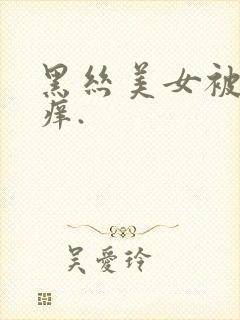 黑丝美女被
痒.
吴爱玲